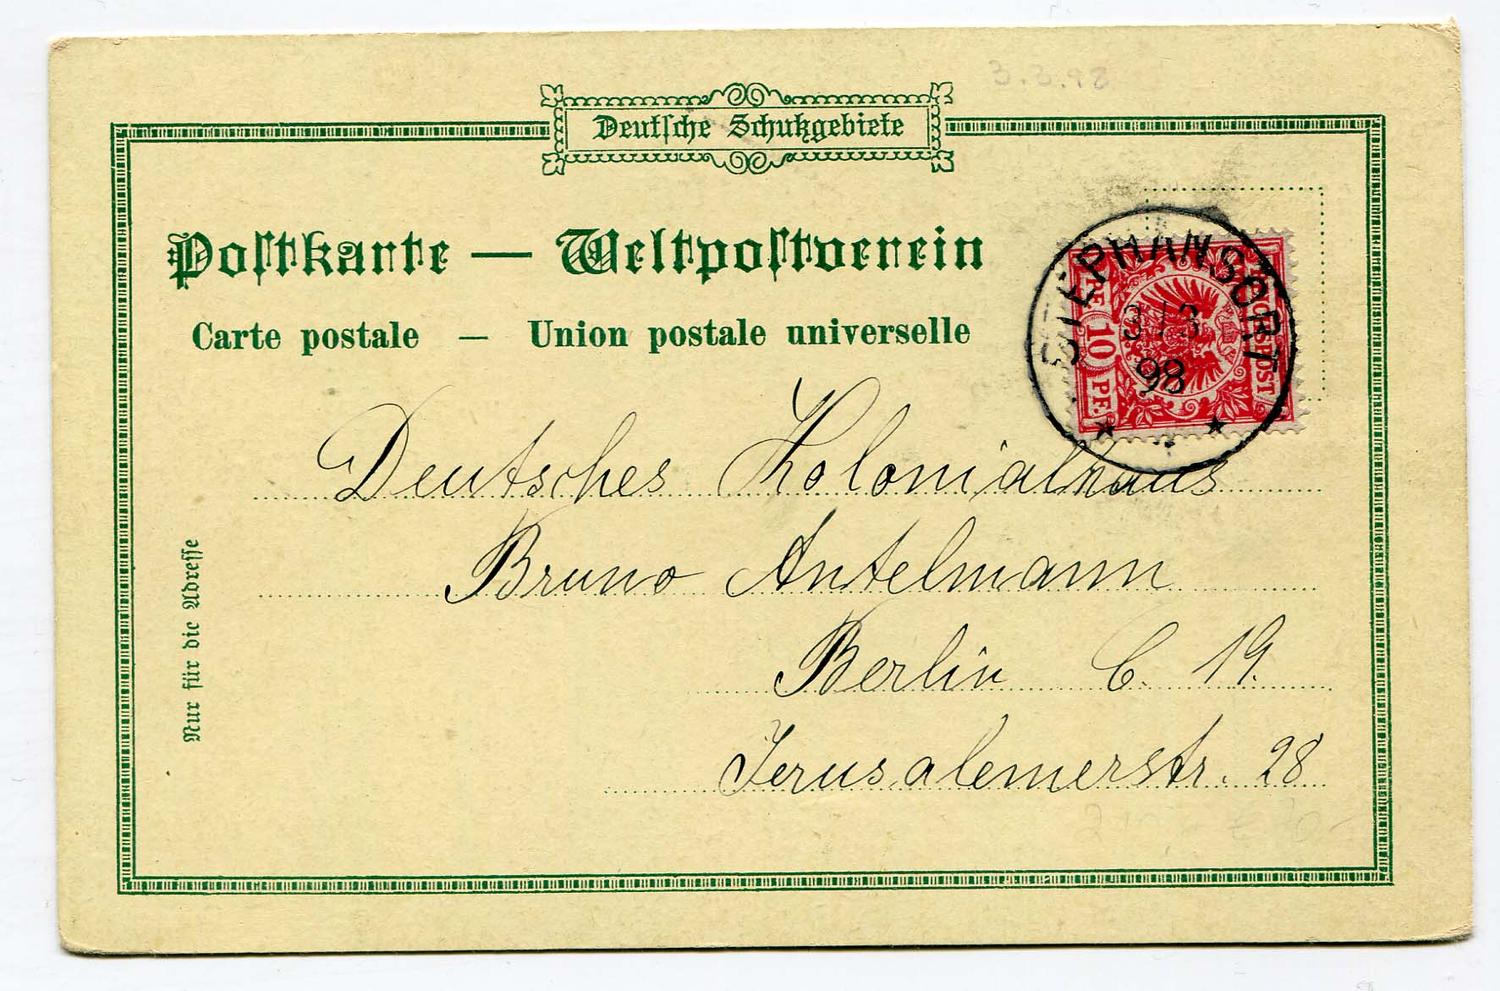 3.3.98
Deutsche Schutzgebiete
Postkarte — Weltpostverein
Carte postale — Union postale universelle
STEPHANSORT
3/3
98
REICHSPOST
10 PF.
Deutsches Kolonialhaus
Bruno Antelmann
Berlin C. 19.
Jerusalemerstr. 28
Nur für die Adresse